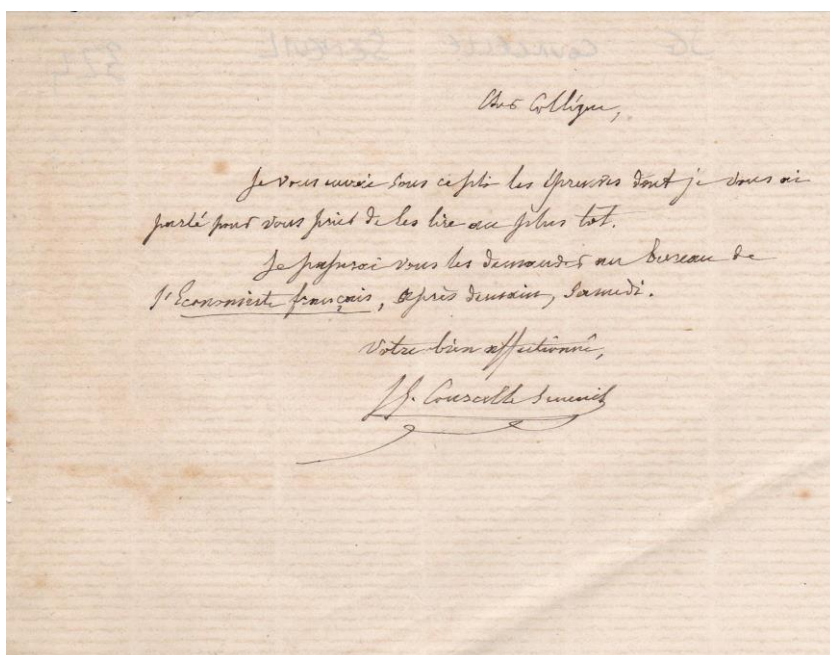 Cher Collègue,
Je vous envoie sous ce pli les épreuves dont je vous ai
parlé pour vous prier de les lire au plus tot.
Je passerai vous les demander au bureau de
l'Economiste français, après demain, Samedi.
Votre bien affectionné,
J. G. Courcelle Seneuil